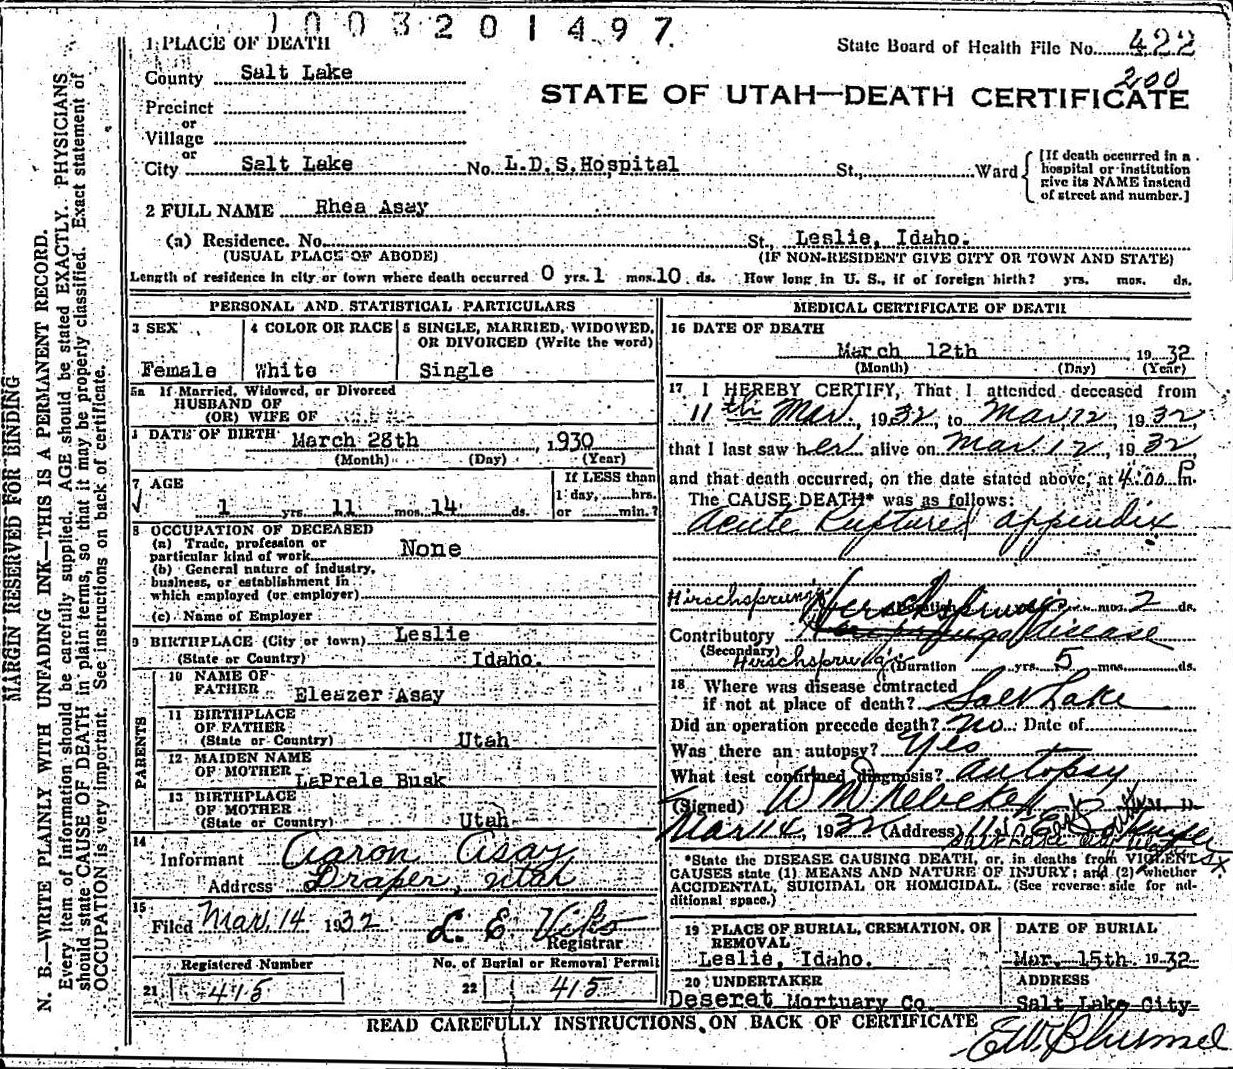 1003201497
State Board of Health File No. 422
200
STATE OF UTAH—DEATH CERTIFICATE
1 PLACE OF DEATH
County Salt Lake
Precinct
or
Village
or
City Salt Lake No. L.D.S.Hospital St., Ward
[If death occurred in a hospital or institution give its NAME instead of street and number.]
2 FULL NAME Rhea Asay
(a) Residence. No. St., Leslie, Idaho.
(USUAL PLACE OF ABODE) (IF NON-RESIDENT GIVE CITY OR TOWN AND STATE)
Length of residence in city or town where death occurred 0 yrs. 1 mos. 10 ds. How long in U. S., if of foreign birth? yrs. mos. ds.
PERSONAL AND STATISTICAL PARTICULARS
3 SEX 4 COLOR OR RACE 5 SINGLE, MARRIED, WIDOWED,
OR DIVORCED (Write the word)
Female White Single
5a If Married, Widowed, or Divorced
HUSBAND OF
(OR) WIFE OF
DATE OF BIRTH March 28th, 1930
(Month) (Day) (Year)
7 AGE If LESS than
1 day, hrs.
1 yrs. 11 mos. 14 ds. or min.?
8 OCCUPATION OF DECEASED
(a) Trade, profession or
particular kind of work None
(b) General nature of industry,
business, or establishment in
which employed (or employer)
(c) Name of Employer
9 BIRTHPLACE (City or town) Leslie
(State or Country) Idaho.
PARENTS
10 NAME OF
FATHER Eleazer Asay
11 BIRTHPLACE
OF FATHER
(State or Country) Utah
12 MAIDEN NAME
OF MOTHER LaPrele Busk
13 BIRTHPLACE
OF MOTHER
(State or Country) Utah
14
Informant Aaron Asay
Address Draper, Utah
15
Filed Mar. 14 1932 L. E. Viko
Registrar
Registered Number No. of Burial or Removal Permit
21 415 22 415
MEDICAL CERTIFICATE OF DEATH
16 DATE OF DEATH
March 12th 1932
(Month) (Day) (Year)
17 I HEREBY CERTIFY, That I attended deceased from
11th Mar, 1932, to Mar 12, 1932,
that I last saw her alive on Mar. 12, 1932
and that death occurred, on the date stated above, at 4:00 P m.
The CAUSE DEATH* was as follows:
Acute Ruptured appendix
Hirschsprung's Hirschsprung's yrs. mos. 2 ds.
Contributory disease
(Secondary)
Hirschsprung's (Duration yrs. 5 mos. ds.
18 Where was disease contracted
if not at place of death? Salt Lake
Did an operation precede death? No Date of
Was there an autopsy? Yes
What test confirmed diagnosis? autopsy
(Signed) M. D.
Mar 14, 1932 (Address)
*State the DISEASE CAUSING DEATH, or, in deaths from VIOLENT
CAUSES state (1) MEANS AND NATURE OF INJURY; and (2) whether
ACCIDENTAL, SUICIDAL OR HOMICIDAL. (See reverse side for ad-
ditional space.)
19 PLACE OF BURIAL, CREMATION, OR DATE OF BURIAL
REMOVAL
Leslie, Idaho. Mar. 15th 1932
20 UNDERTAKER ADDRESS
Deseret Mortuary Co. Salt Lake City
READ CAREFULLY INSTRUCTIONS ON BACK OF CERTIFICATE
MARGIN RESERVED FOR BINDING
N. B.—WRITE PLAINLY WITH UNFADING INK—THIS IS A PERMANENT RECORD.
Every item of information should be carefully supplied. AGE should be stated EXACTLY. PHYSICIANS
should state CAUSE OF DEATH in plain terms, so that it may be properly classified. Exact statement of
OCCUPATION is very important. See instructions on back of certificate.